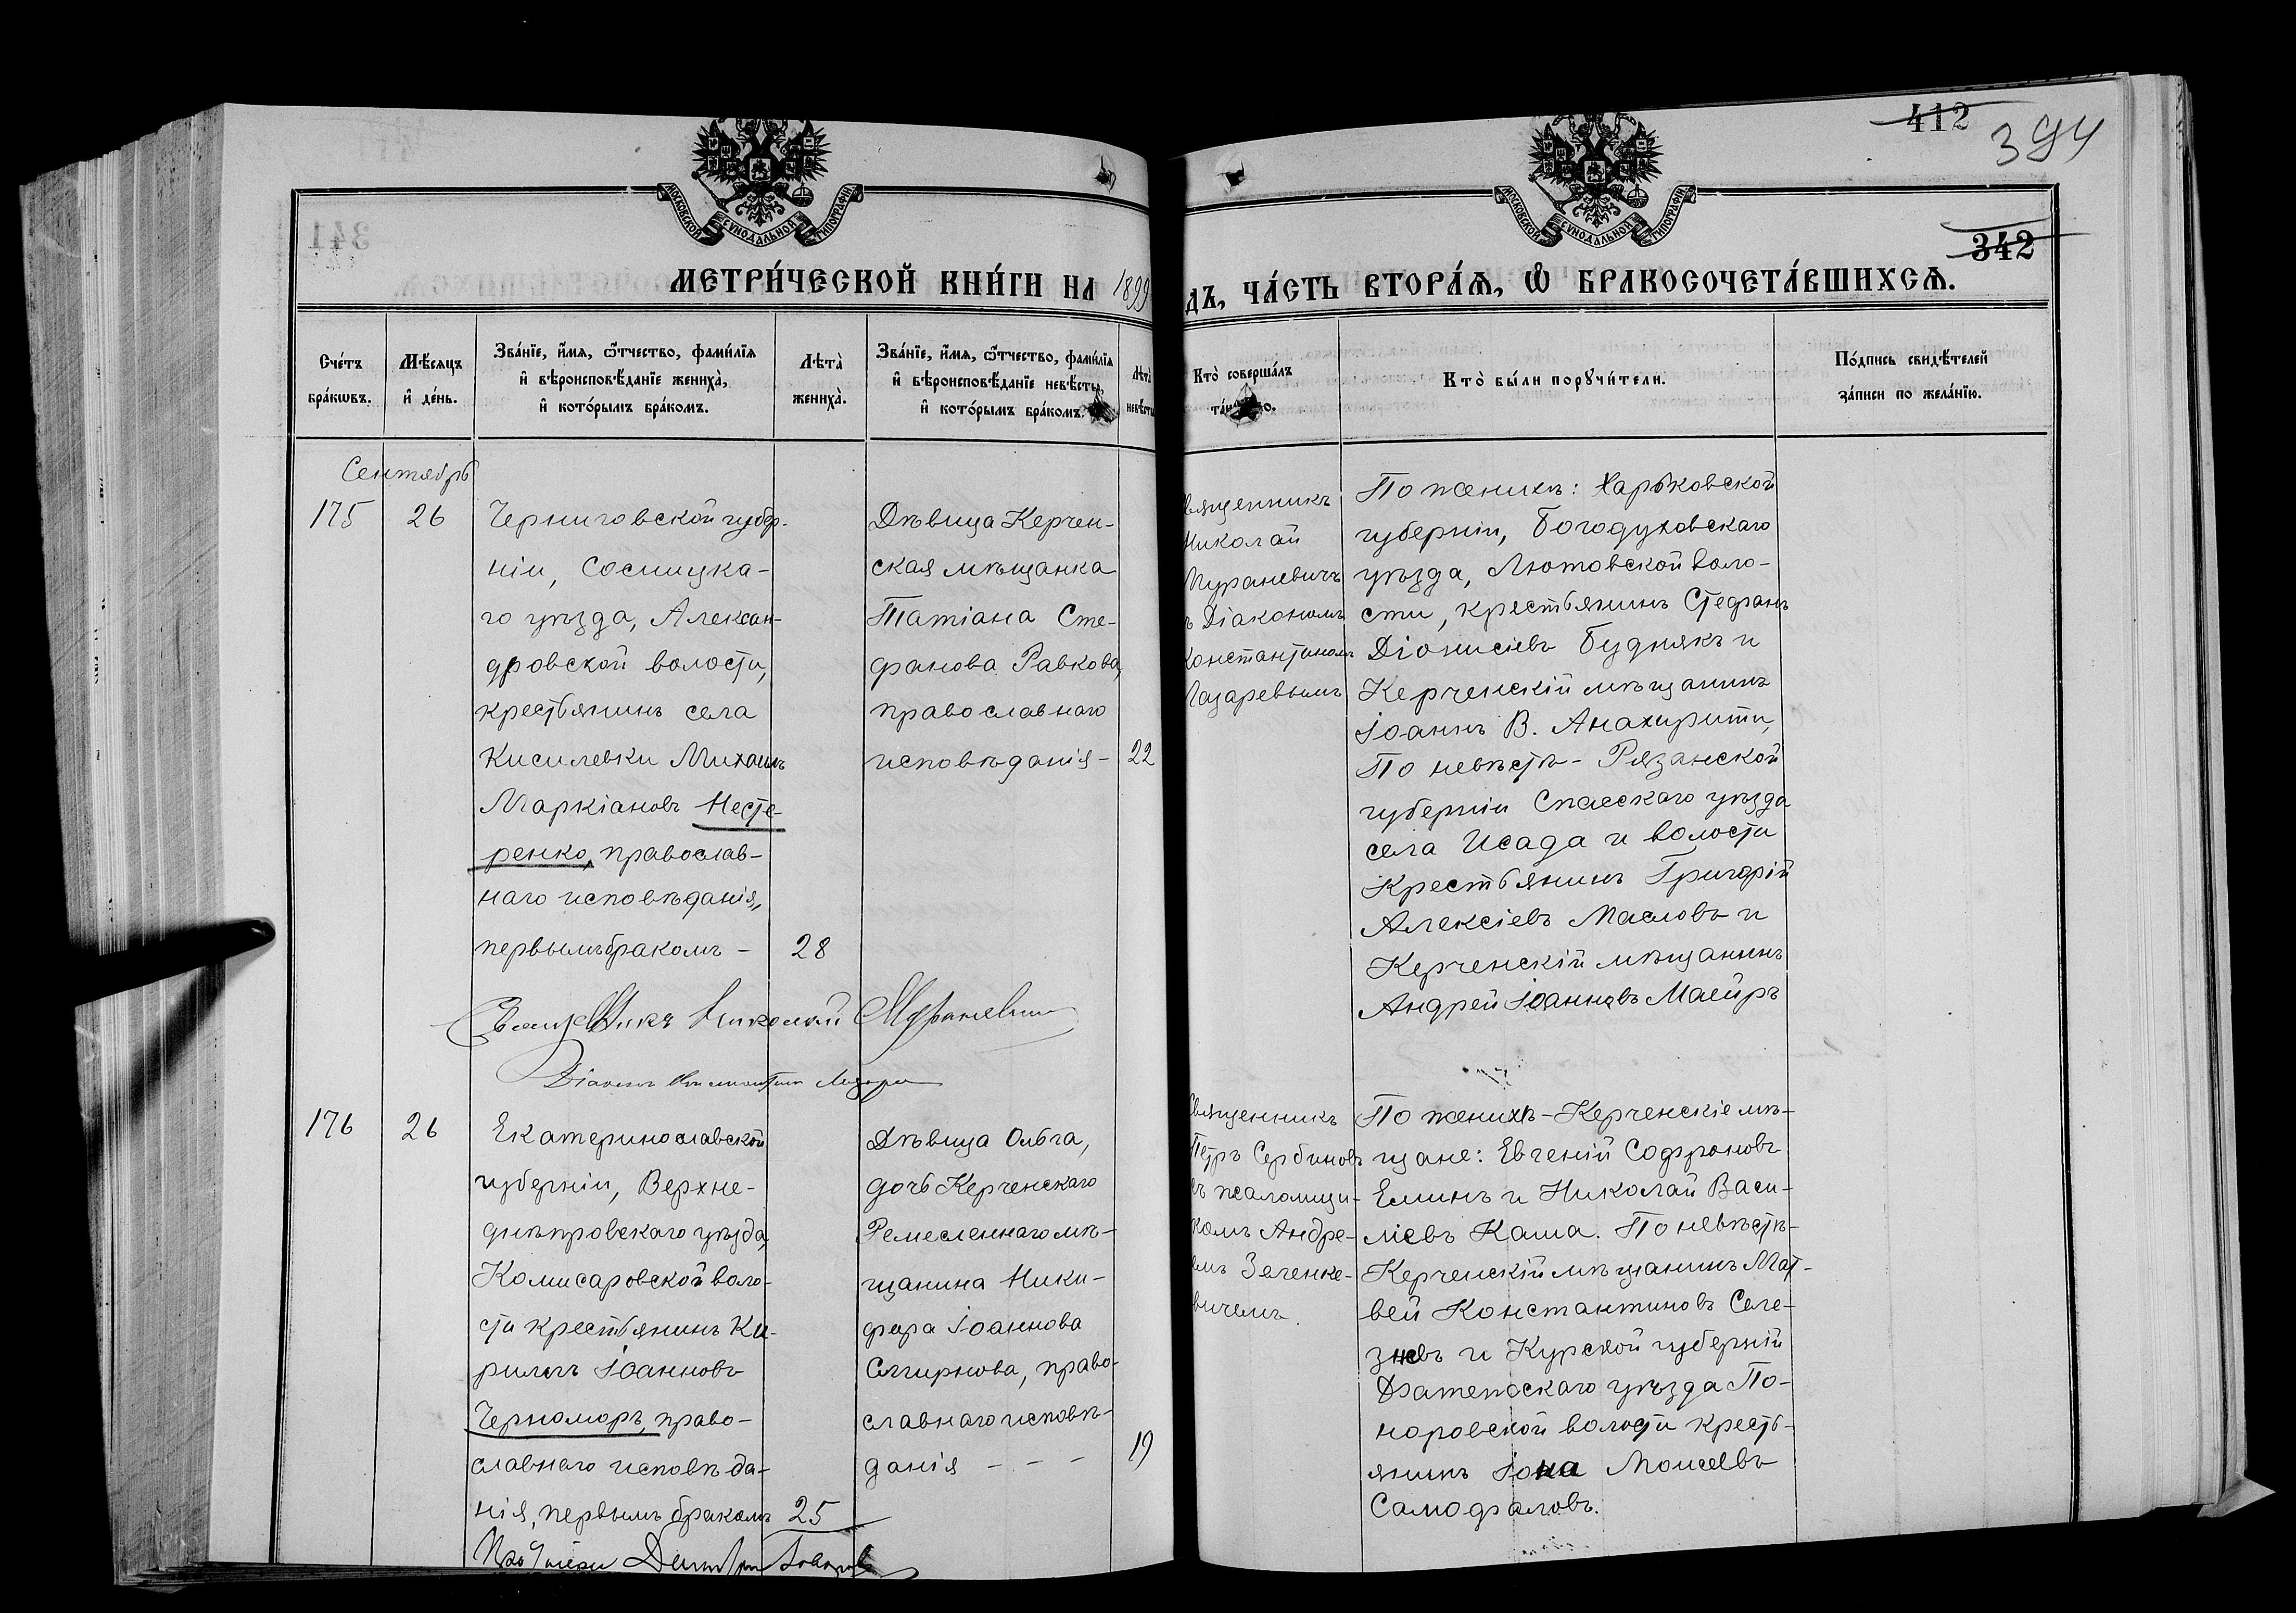 412
394
МОСКОВСКОЙ СУНОДАЛЬНОЙ ТИПОГРАФІИ
МОСКОВСКОЙ СУНОДАЛЬНОЙ ТИПОГРАФІИ
342
МЕТРИ́ЧЕСКОЙ КНИ́ГИ НА 1899
ДЪ, ЧА́СТЬ ВТОРА́Ѧ, Ѽ БРАКОСОЧЕТА́ВШИХСѦ.
Сче́тъ
бра́кѡвъ.
Мѣ́сяцъ
и҆ де́нь.
Зва́нїе, и҆́мя, ѻ҆́тчество, фами́лїя
и҆ вѣроисповѣ́данїе жениха̀,
и҆ кото́рымъ бра́комъ.
Лѣта̀
жениха̀.
Зва́нїе, и҆́мя, ѻ҆́тчество, фами́лїя
и҆ вѣроисповѣ́данїе невѣ́сты,
и҆ кото́рымъ бра́комъ.
Лѣта̀
невѣ́сты
Кто̀ соверша́лъ
Кто̀ бы́ли порꙋчи́тели.
По́дпись свидѣ́телей
за́писи по жела́нїю.
Сентябрь
175
26
Черниговской губер-
ніи, Сосницка-
го уѣзда, Алексан-
дровской волости,
крестьянинъ села
Кисилевки Михаилъ
Маркіановъ Несте-
ренко, православ-
наго исповѣданія,
первымъ бракомъ -
28
Дѣвица Керчен-
ская мѣщанка
Татіана Сте-
фанова Равкова,
православнаго
исповѣданія -
22
вященникъ
Николай
Мураневичъ
ъ Діакономъ
Константиномъ
Лазаревымъ
По женихѣ: Харьковской
губерніи, Богодуховскаго
уѣзда, Лютовской воло-
сти, крестьянинъ Стефанъ
Діонисіевъ Буднякъ и
Керченскій мѣщанинъ
Іоаннъ В. Анахирити,
По невѣстѣ - Рязанской
губерніи Спасскаго уѣзда
села Исада и волости
Крестьянинъ Григорій
Алексіевъ Масловъ и
Керченскій мѣщанинъ
Андрей Іоанновъ Маейръ
Священникъ Николай Мураневич
Діаконъ Константин Лазаре
176
26
Екатеринославской
губерніи, Верхне-
днѣпровскаго уѣзда,
Комисаровской воло-
сти крестьянинъ Ки-
риллъ Іоанновъ
Черноморъ, право-
славнаго исповѣда-
нія, первымъ бракомъ
25
Дѣвица Ольга,
дочь Керченскаго
Ремесленнаго мѣ-
щанина Ники-
фора Іоаннова
Смирнова, право-
славнаго исповѣ-
данія - - -
19
Священникъ
Петръ Сербиновъ
ъ псаломщи-
комъ Андре-
емъ Зеленке-
вичемъ
По женихѣ - Керченскіе мѣ-
щане: Евгеній Софроновъ
Еминъ и Николай Васи-
ліевъ Каша. По невѣстѣ -
Керченскій мѣщанинъ Мат-
вей Константиновъ Селе-
зневъ и Курской губерній
уѣзда По-
норовской волости кресть-
янинъ Іона Моисеевъ
Самофаловъ.
Протоіерей Димитрій